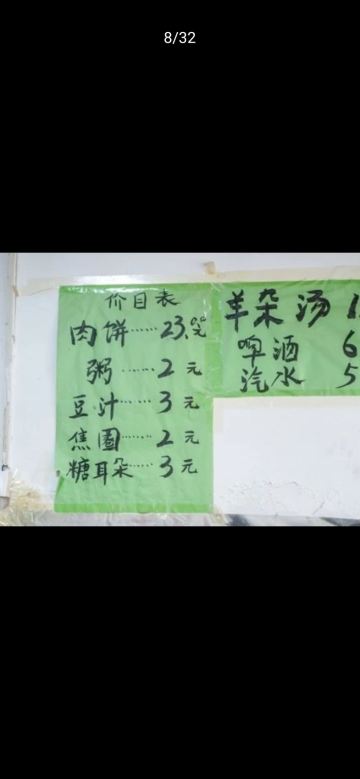 8/32
价目表
肉饼……23.00元
粥……2元
豆汁……3元
焦圈……2元
糖耳朵……3元
羊杂汤
啤酒 6
汽水 5